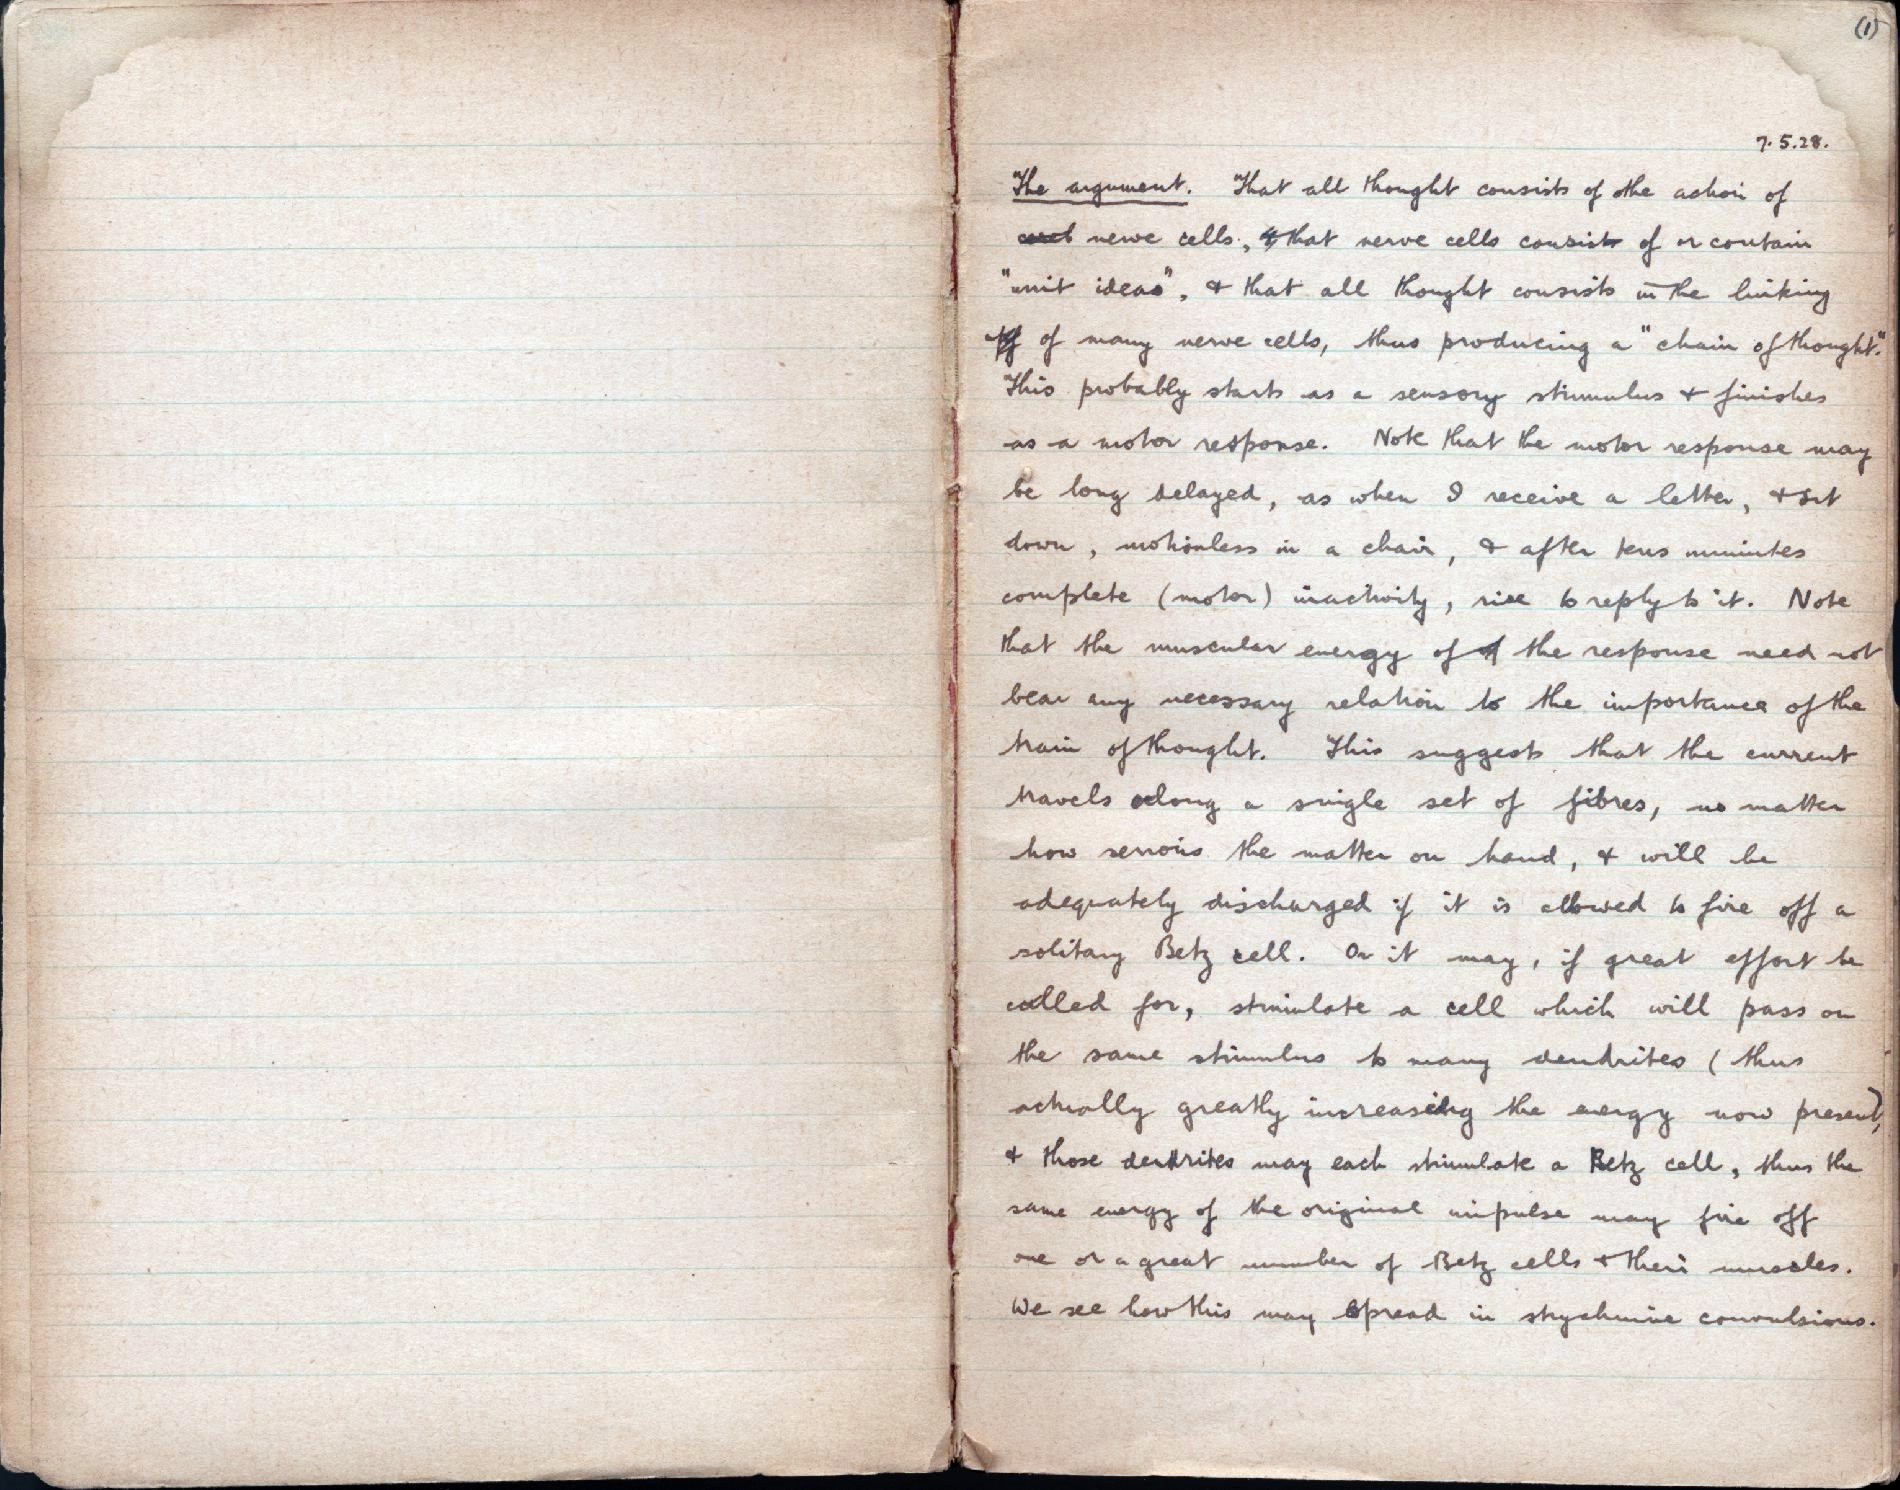 (1)
7.5.28.
The argument. That all thought consists of the action of
cereb nerve cells, & that nerve cells consist of or contain
"unit ideas", & that all thought consists in the linking
of many nerve cells, thus producing a "chain of thought".
This probably starts as a sensory stimulus & finishes
as a motor response. Note that the motor response may
be long delayed, as when I receive a letter, & sit
down, motionless in a chair, & after tens minutes
complete (motor) inactivity, rise to reply to it. Note
that the muscular energy of of the response need not
bear any necessary relation to the importance of the
train of thought. This suggests that the current
travels along a single set of fibres, no matter
how serious the matter on hand, & will be
adequately discharged if it is allowed to fire off a
solitary Betz cell. Or it may, if great effort be
called for, stimulate a cell which will pass on
the same stimulus to many dendrites (thus
actually greatly increasing the energy now present),
& those dendrites may each stimulate a Betz cell, thus the
same energy of the original impulse may fire off
one or a great number of Betz cells & their muscles.
We see how this may spread in strychnine convulsions.